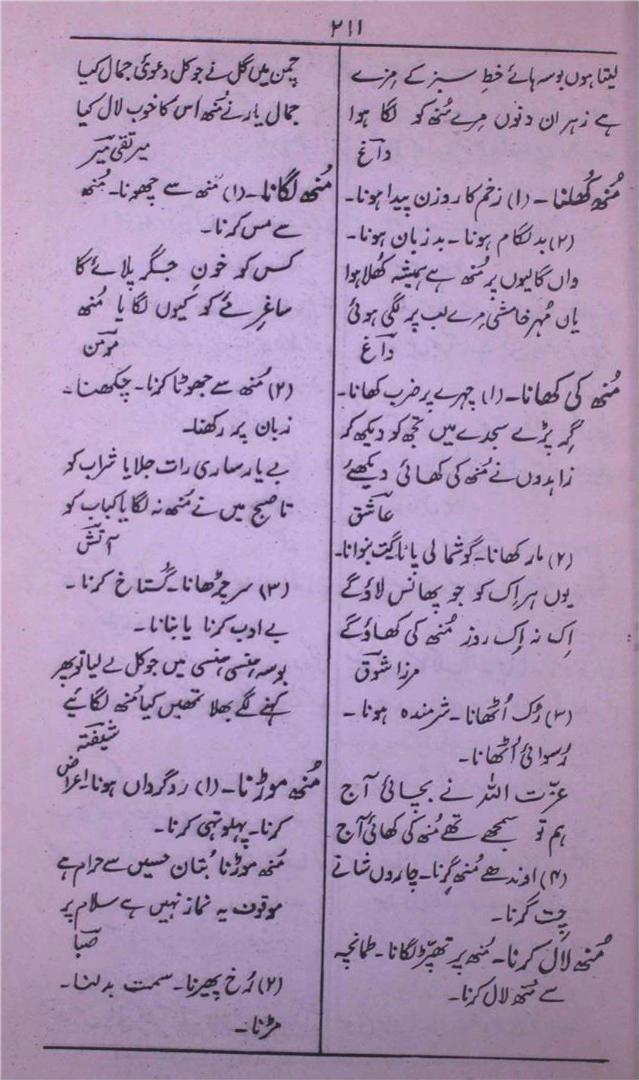 ۲۱۱
لیتا ہوں بوسہ ہائے خطِ سبز کے مزے
ہے زہر ان دنوں مرے مُنھ کو لگا ہوا
داغؔ
مُنھ کُھلنا۔ (۱) زخم کا روزن پیدا ہونا۔
(۲) بد لگام ہونا۔ بد زبان ہونا۔
واں گالیوں پر مُنھ ہے ہمیشہ کُھلا ہوا
یاں مُہرِ خامشی مرے لب پر لگی ہوئی
داغؔ
مُنھ کی کھانا۔ (۱) چہرے پر ضرب کھانا۔
گر پڑے سجدے میں تجھ کو دیکھ کر
زاہدوں نے مُنھ کی کھائی دیکھئے
عاشقؔ
(۲) مار کھانا۔ گوشمالی پانا گت بنوانا۔
یوں ہر اِک کو جو پھانس لاؤگے
اِک نہ اِک روز مُنھ کی کھاؤگے
مرزا شوقؔ
(۳) زک اُٹھانا۔ شرمندہ ہونا۔
رُسوائی اُٹھانا۔
عزّت اللہ نے بچائی آج
ہم تو سمجھے تھے مُنھ کی کھائی آج
(۴) اوندھے مُنھ گرنا۔ چاروں شانے
چِت گرنا۔
مُنھ لال کرنا۔ مُنھ پر تھپّڑ لگانا۔ طمانچہ
سے مُنھ لال کرنا۔
چمن میں گل نے جو کل دعویٔ جمال کیا
جمالِ یار نے مُنھ اُس کا خوب لال کیا
میر تقی میرؔ
مُنھ لگانا۔ (۱) مُنھ سے چھونا۔ مُنھ
سے مس کرنا۔
کس کو خونِ جگر پلائے گا
ساغرِ مے کو کیوں لگایا مُنھ
مومنؔ
(۲) مُنھ سے جھوٹا کرنا۔ چکھنا۔
زبان پر رکھنا۔
بے یار ساری رات جلایا شراب کو
تا صبح میں نے مُنھ نہ لگایا کباب کو
آتشؔ
(۳) سر چڑھانا۔ گُستاخ کرنا۔
بے ادب کرنا یا بنانا۔
بوسہ ہنسی ہنسی میں جو کل لے لیا تو پھر
کہنے لگے بھلا تمھیں کیا مُنھ لگائیے
شیفتہؔ
مُنھ موڑنا۔ (۱) روگرداں ہونا۔ اعراض
کرنا۔ پہلو تہی کرنا۔
مُنھ موڑنا بُتانِ حسیں سے حرام ہے
موقوف یہ نماز نہیں ہے سلام پر
صباؔ
(۲) رُخ پھیرنا۔ سمت بدلنا۔
مڑنا۔